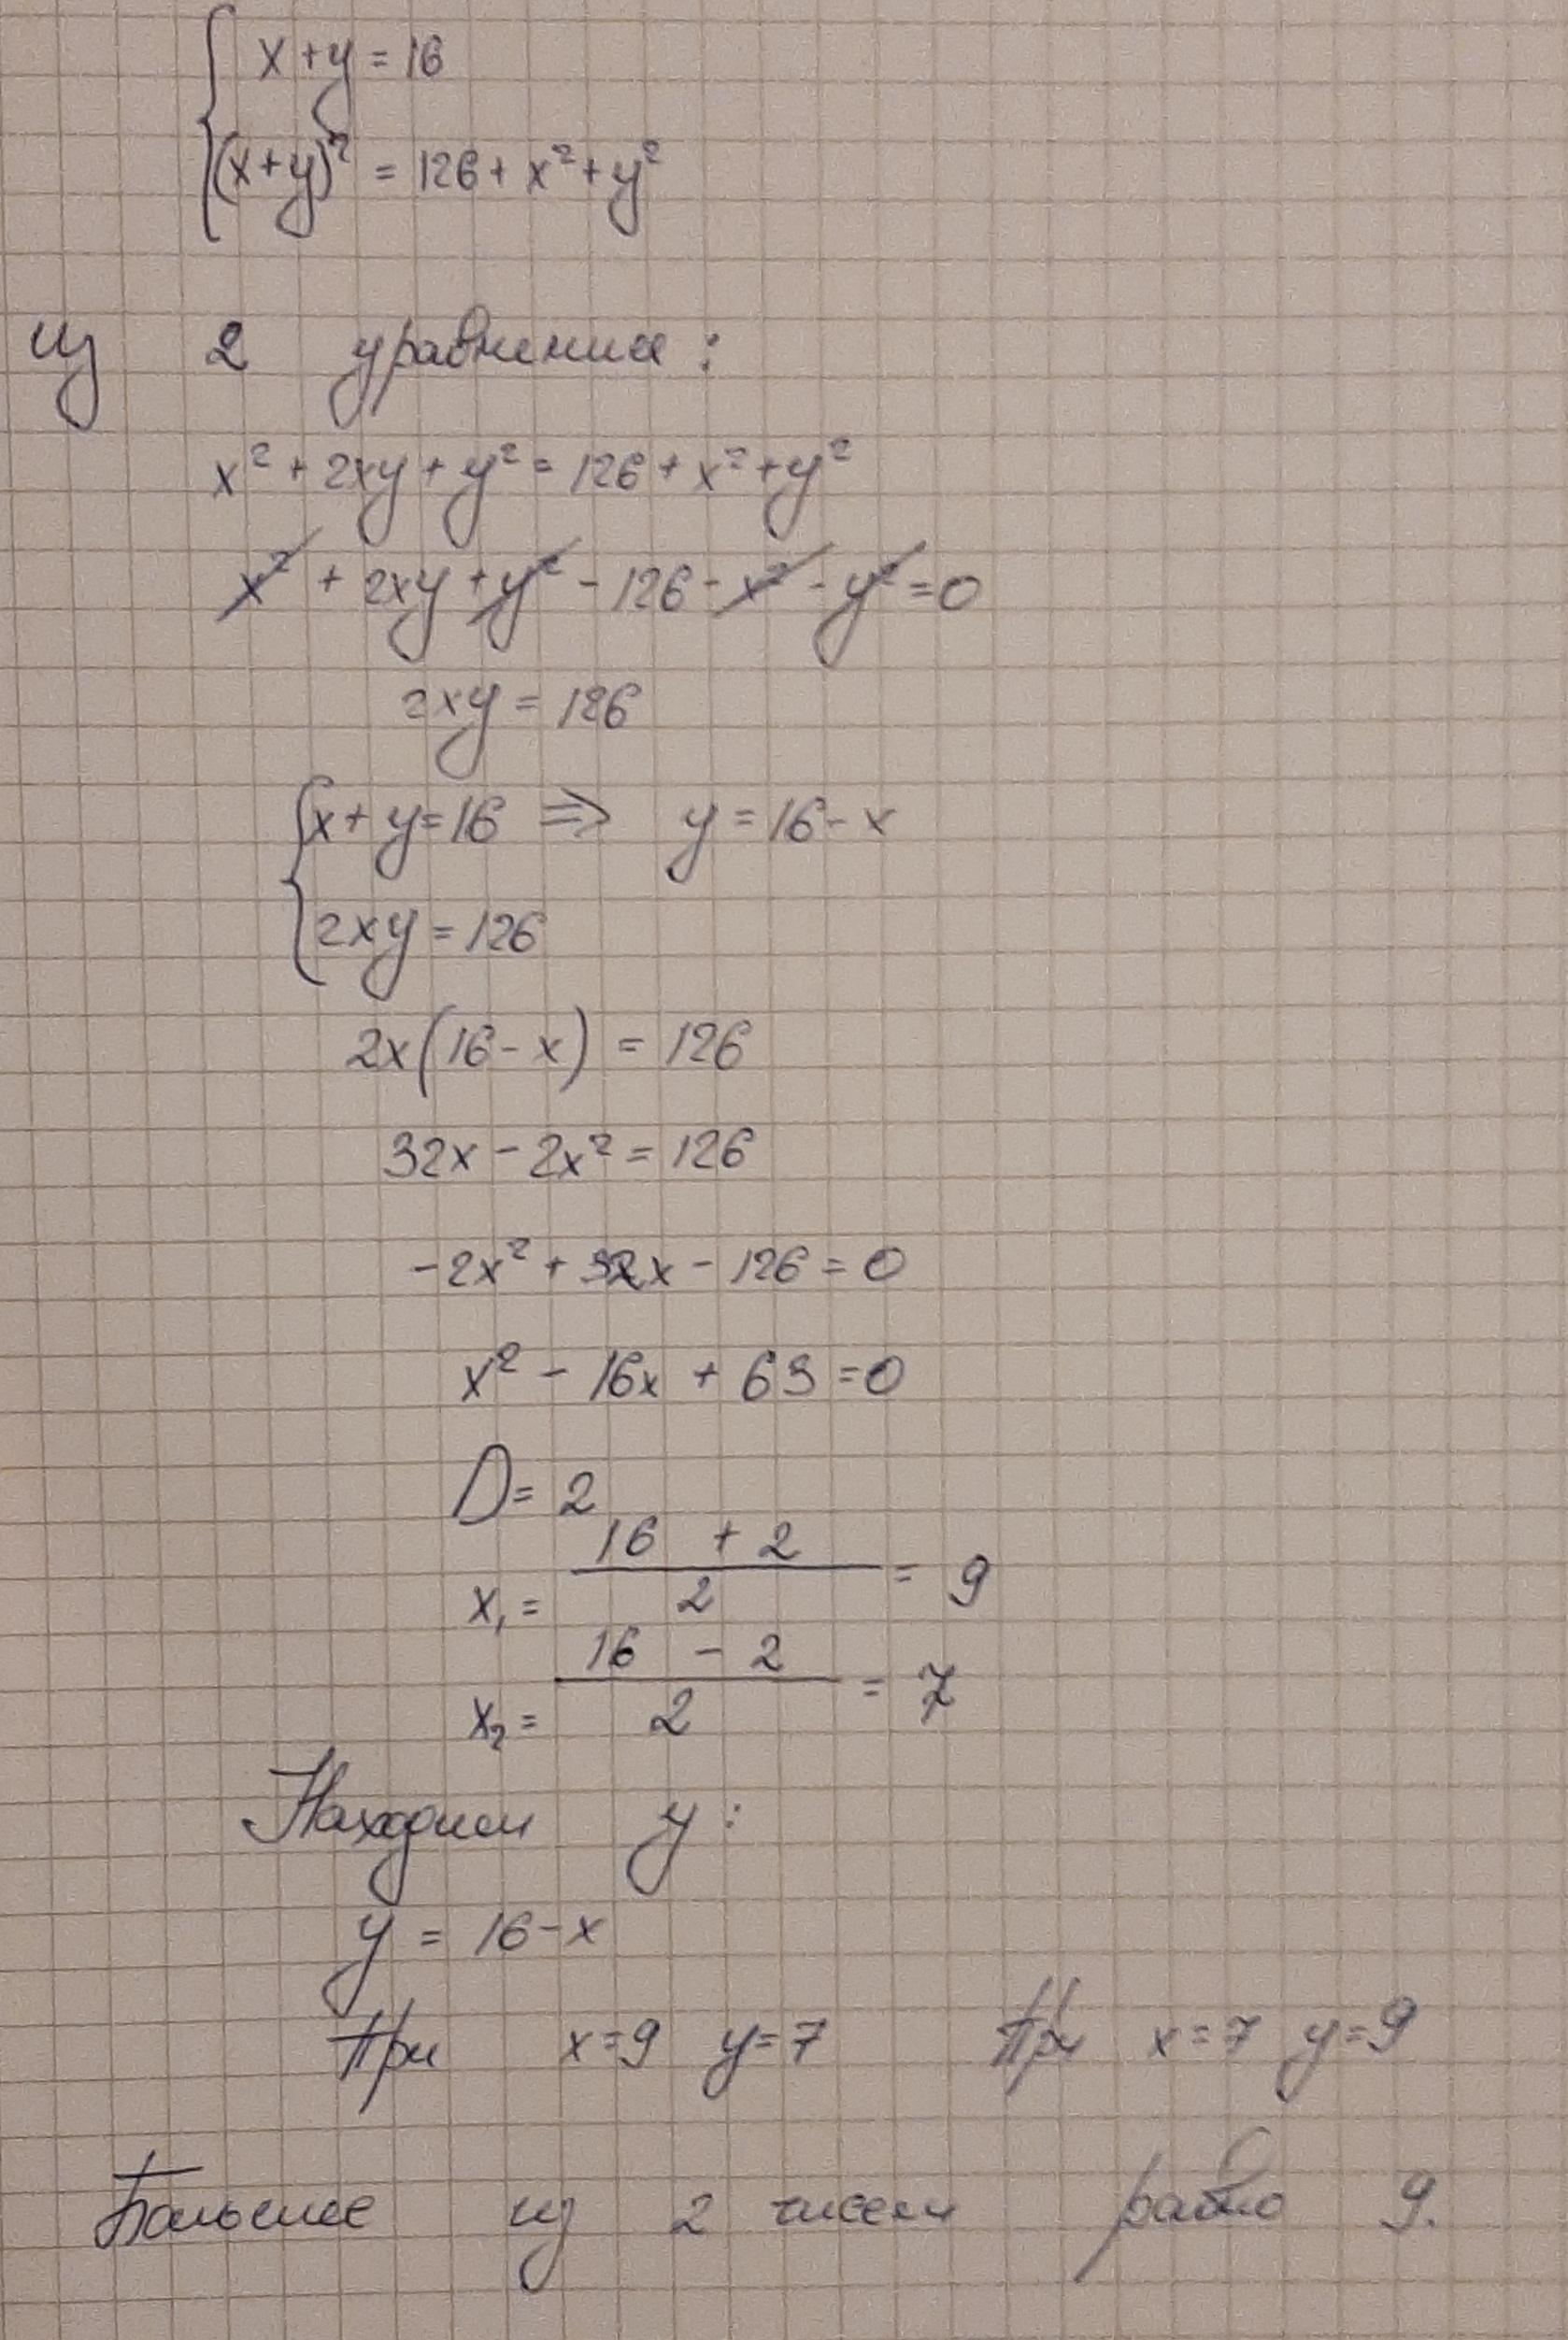 x + y = 16
(x+y)² = 126 + x² + y²
из 2 уравнения:
x² + 2xy + y² = 126 + x² + y²
x² + 2xy + y² - 126 - x² - y² = 0
2xy = 126
x + y = 16 ⇒ y = 16 - x
2xy = 126
2x(16 - x) = 126
32x - 2x² = 126
-2x² + 32x - 126 = 0
x² - 16x + 63 = 0
D = 2
x₁ = (16 + 2)/2 = 9
x₂ = (16 - 2)/2 = 7
Находим y:
y = 16 - x
При x=9 y=7 При x=7 y=9
Большее из 2 чисел равно 9.